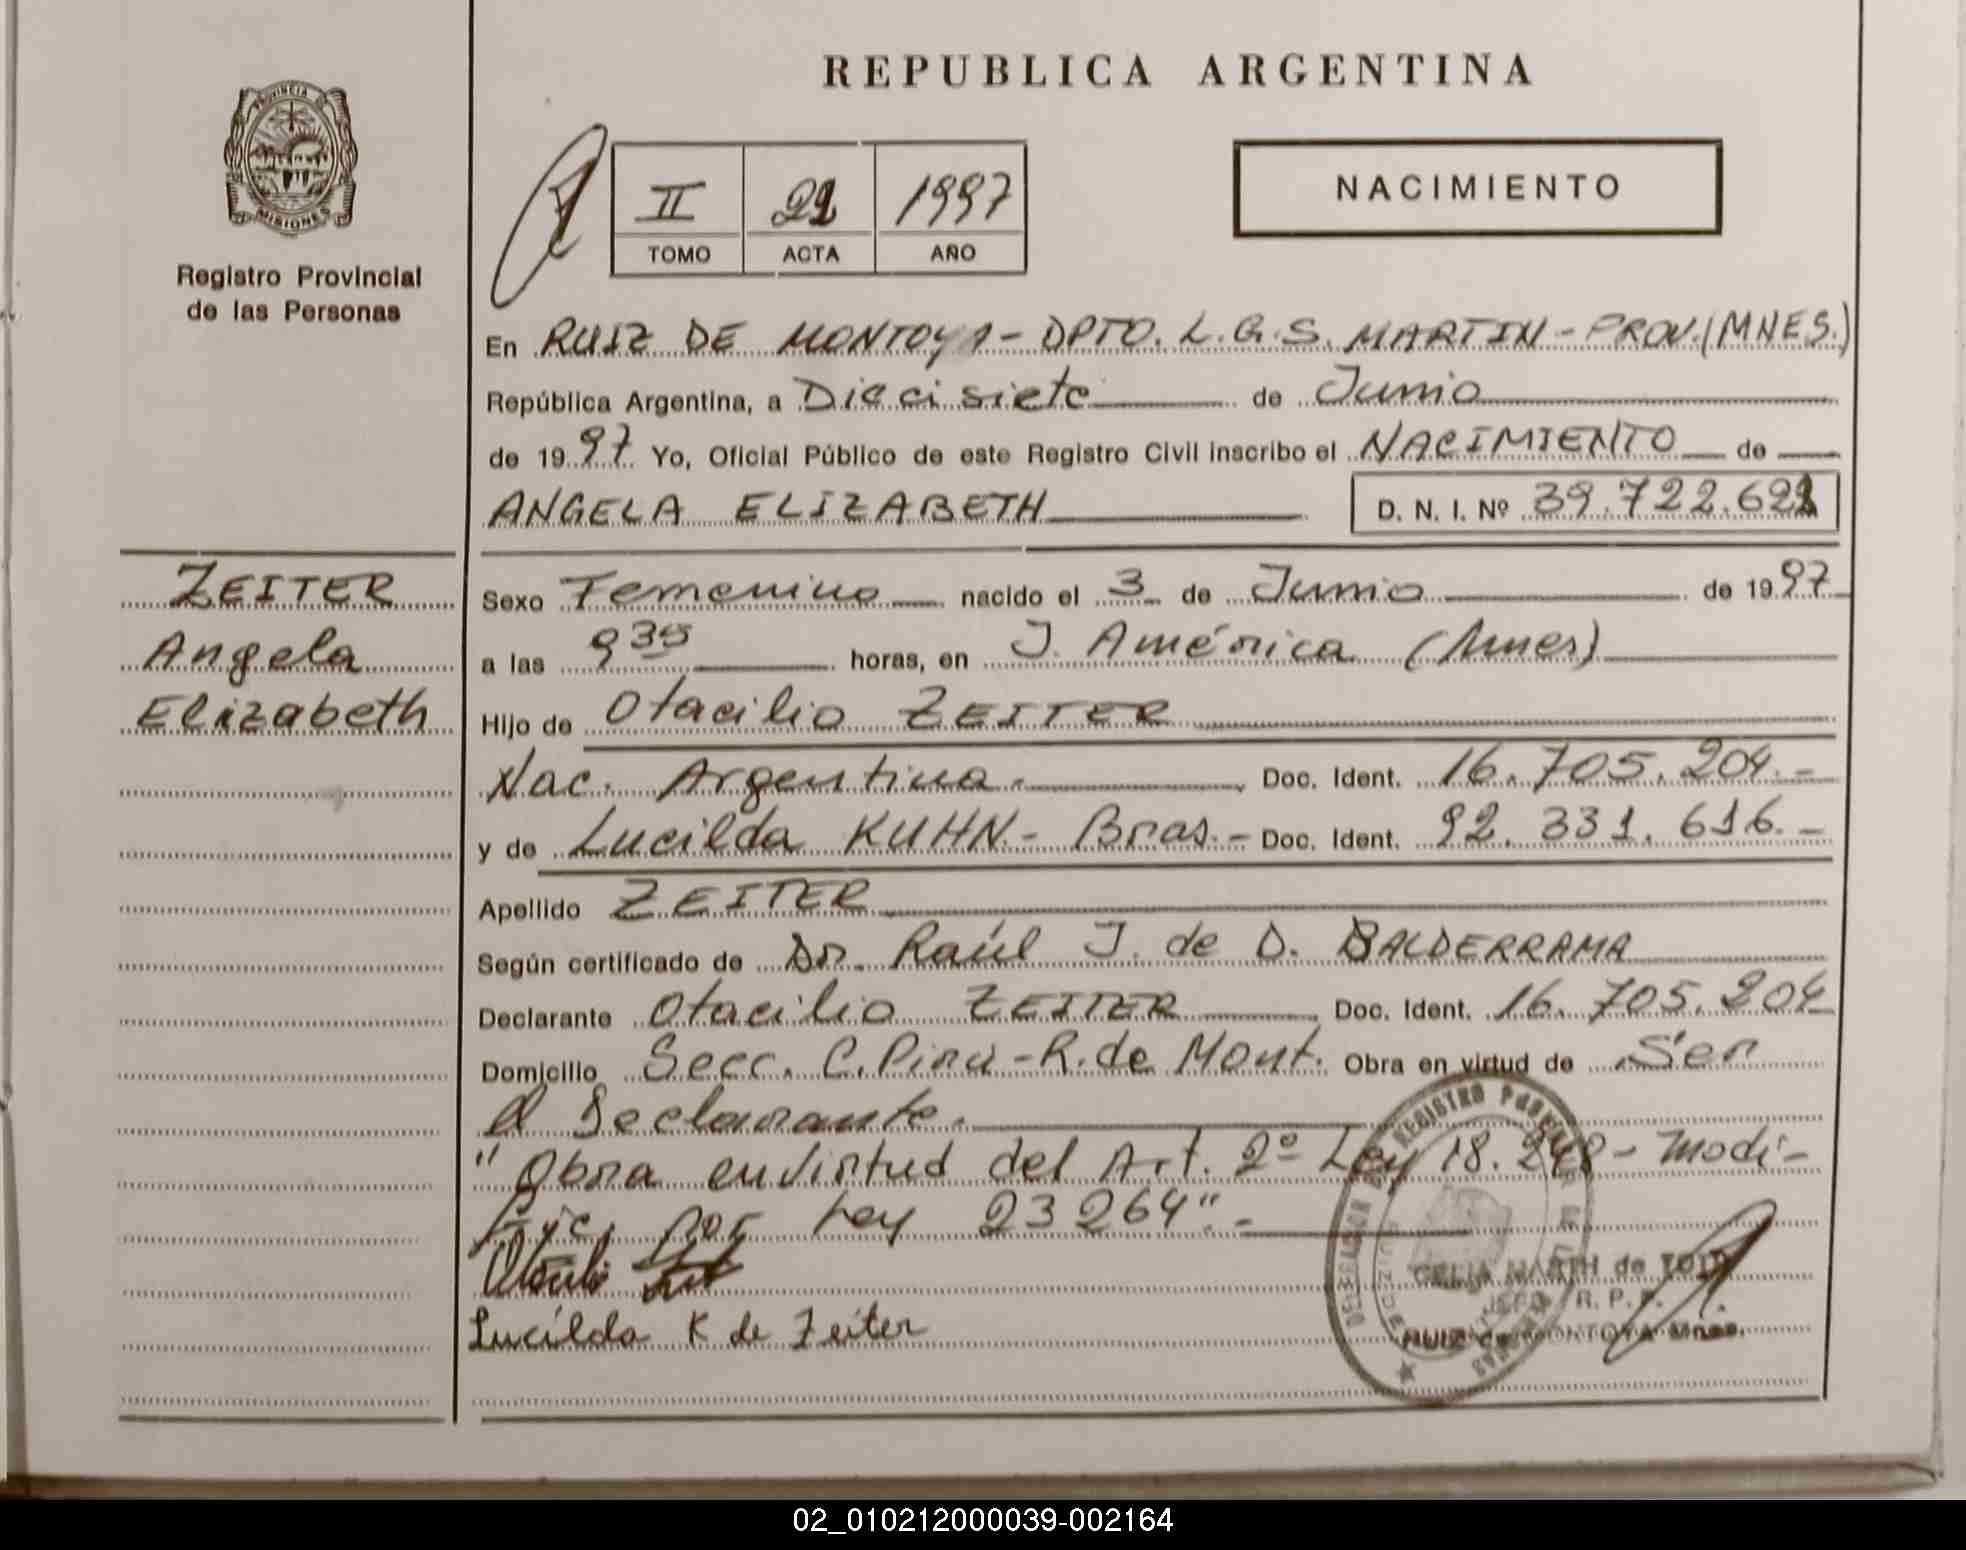 REPUBLICA ARGENTINA
PROVINCIA DE
MISIONES
Registro Provincial
de las Personas
II 1997
TOMO ACTA AÑO
NACIMIENTO
En RUIZ DE MONTOYA - DPTO. L.G.S. MARTIN - PROV. (MNES.)
República Argentina, a Diecisiete de Junio
de 1997 Yo, Oficial Público de este Registro Civil inscribo el NACIMIENTO de
ANGELA ELIZABETH D. N. I. Nº 39.722.621
ZEITER
Angela
Elizabeth
Sexo Femenino nacido el 3 de Junio de 1997
a las 9 35 horas, en J. América (Mnes)
Hijo de Otacilio ZEITER
Nac. Argentina. Doc. Ident. 16.705.204.-
y de Lucilda KUHN.- Bras.- Doc. Ident. 92.331.616.-
Apellido ZEITER
Según certificado de Dr. Raúl J. de D. BALDERRAMA
Declarante Otacilio ZEITER Doc. Ident. 16.705.204
Domicilio Secc. C. Pirú - R. de Mont. Obra en virtud de Ser
el Declarante.
"Obra en virtud del Art. 2º Ley 18.248 - Modi-
fic. por Ley 23264".-
Lucilda K de Zeiter
CELIA MARTH de
JEFE R. P. P.
RUIZ de MONTOYA Mnes.
02_010212000039-002164